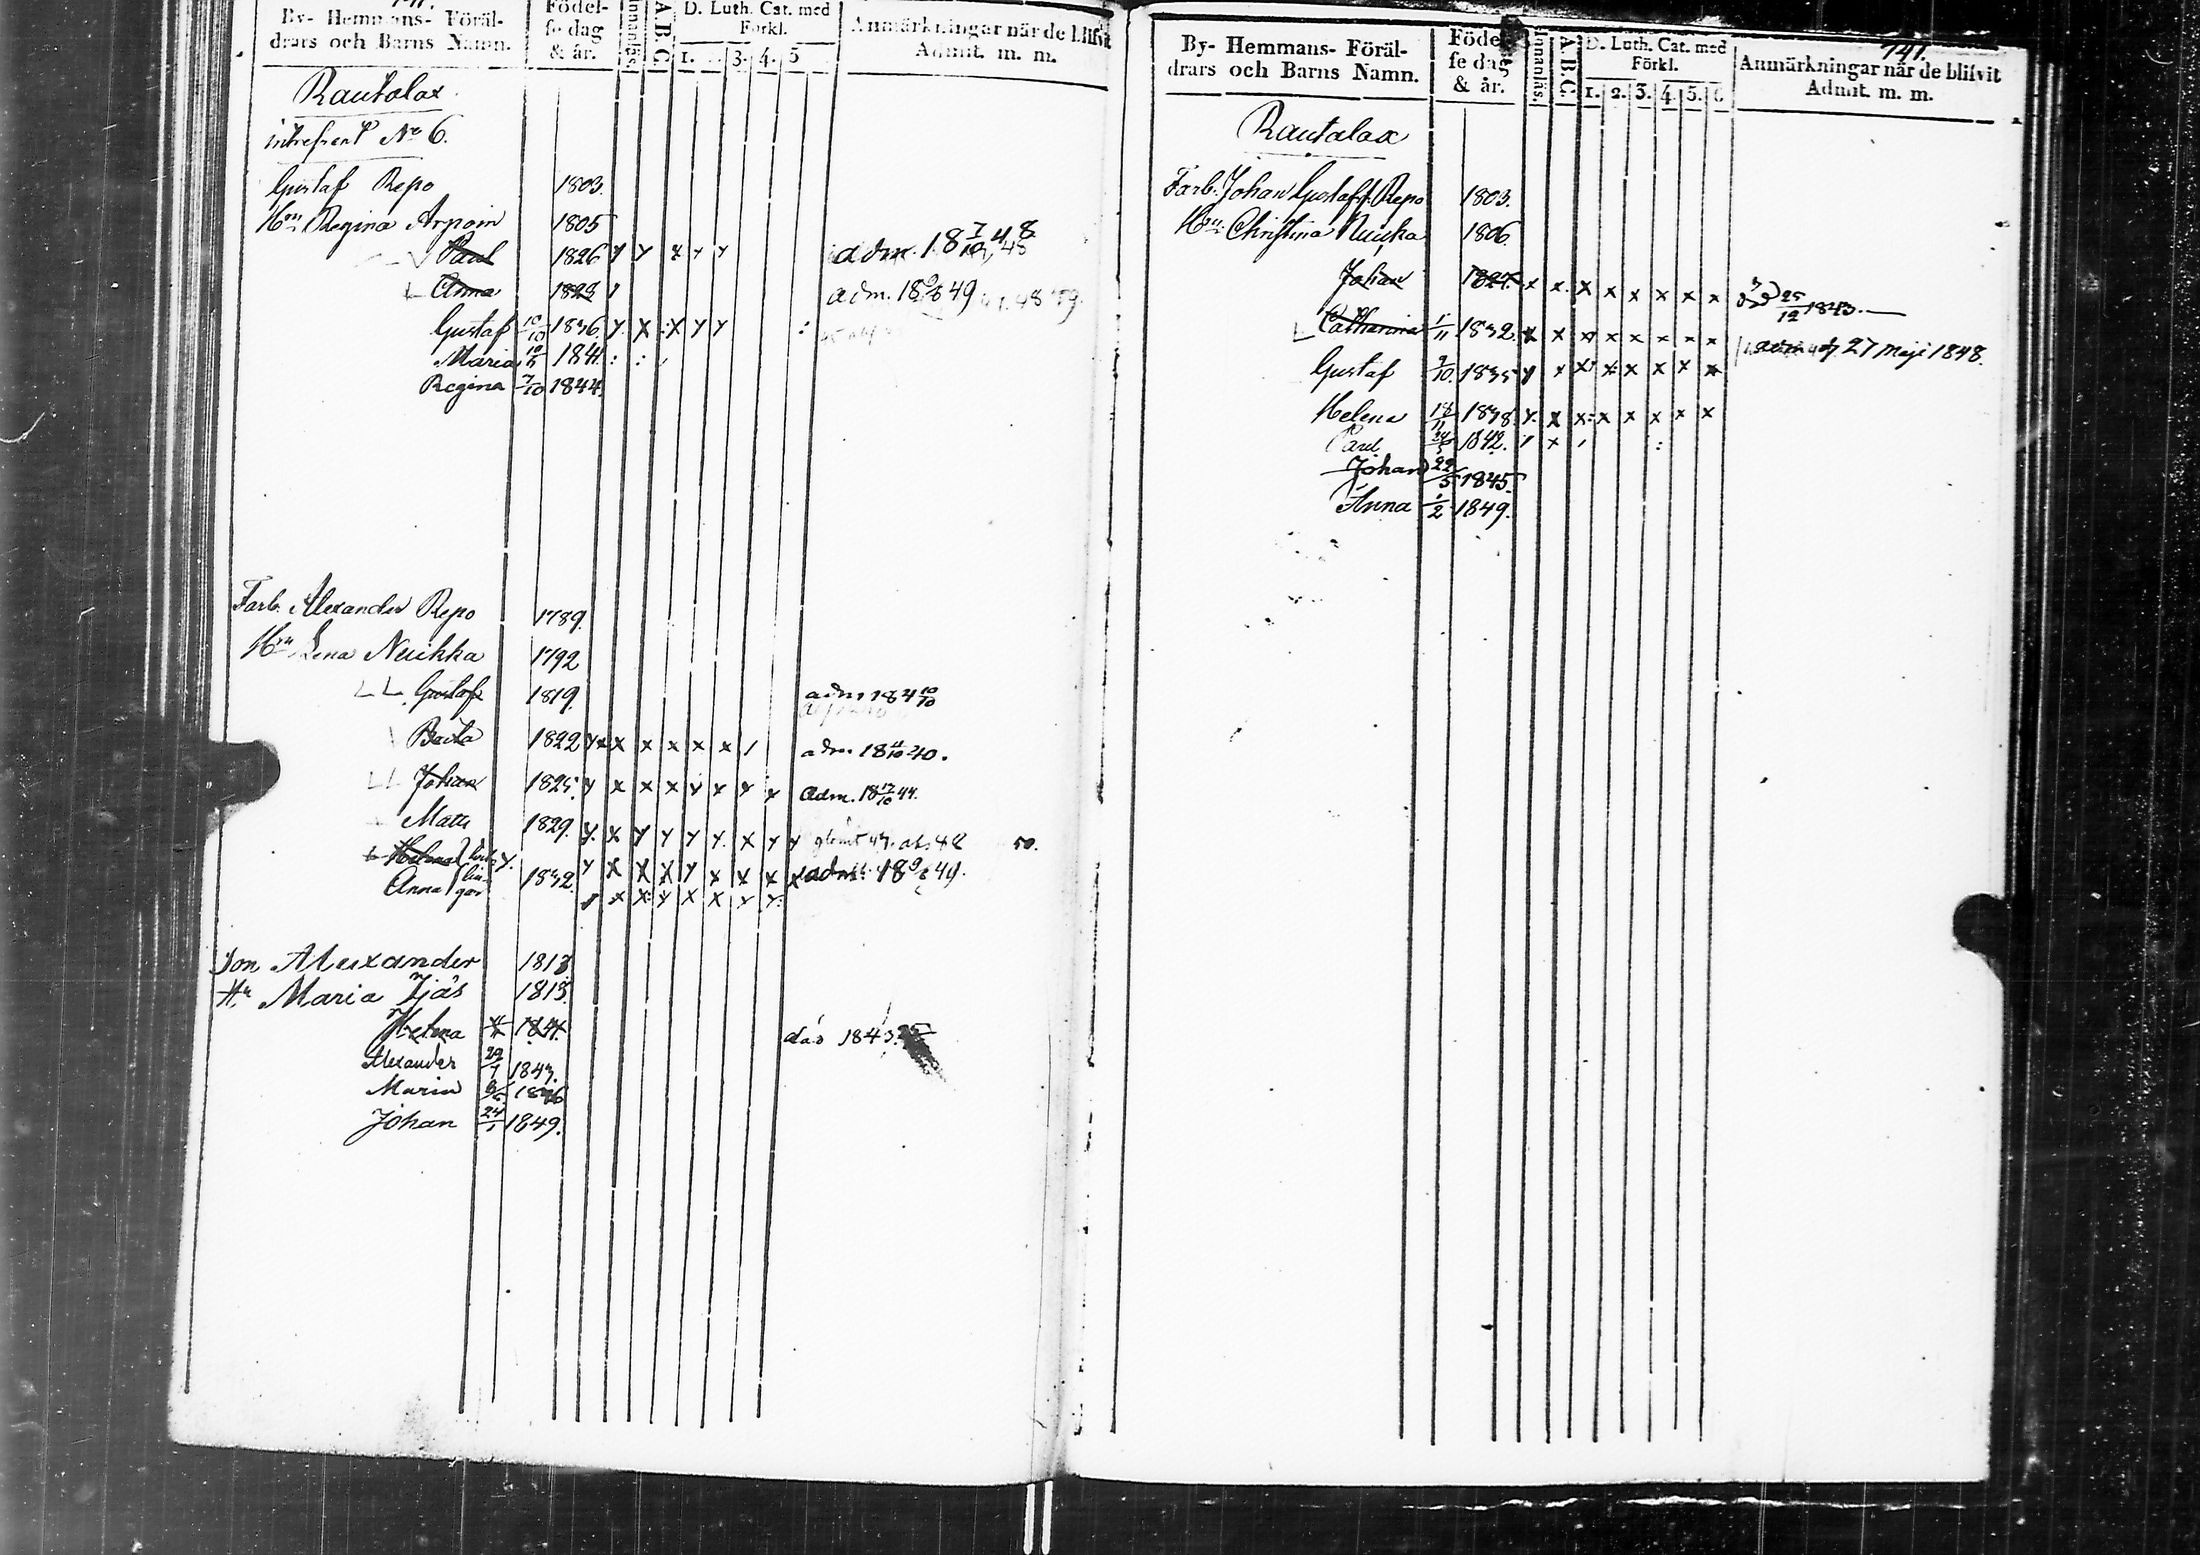 By- Hemmans- Föräl-
drars och Barns Namn.
Födel-
se dag
& år.
A.B.C.
D. Luth. Cat. med
Förkl.
1. 3. 4. 5
Anmärkningar när de blifvit
Admit. m. m.
Rautalax
No 6.
Gustaf Repo 1803.
Hu Regina Arpoin 1805
Paul 1826 adm. 18 7/10 48
Anna 1828 adm. 18 49
Gustaf 10/10 1836
Maria 1841
Regina 7/10 1844.
Farb. Alexander Repo 1789.
Hru Lena Nuikka 1792
Gustaf 1819. adm 184 10/10
Beata 1822 adm. 18 40.
Johan 1825. adm. 18 17/10 44.
Matts 1829. 50.
Helena
Anna 1832. adm. 18 49.
Son Alexander 1813
Hu Maria Ijäs 1813.
Helena 1841. död 1843.
Alexander 29/7 1843.
Maria 1846
Johan 24/1 1849.
141.
By- Hemmans- Föräl-
drars och Barns Namn.
Födel-
se dag
& år.
Innanläs.
A.B.C.
D. Luth. Cat. med
Förkl.
1. 2. 3. 4. 5. 6
Anmärkningar när de blifvit
Admit. m. m.
Rautalax
Farb. Johan Gustaff. Repo 1803.
Hru Christina Nuikka 1806.
Johan 1827. död 25/12 1843.
Catharina 1/11 1832. adm. 27 Maji 1848.
Gustaf 9/10 1835
Helena 18/11 1838.
Paul 1842.
Johan 22/5 1845.
Anna 1/2 1849.